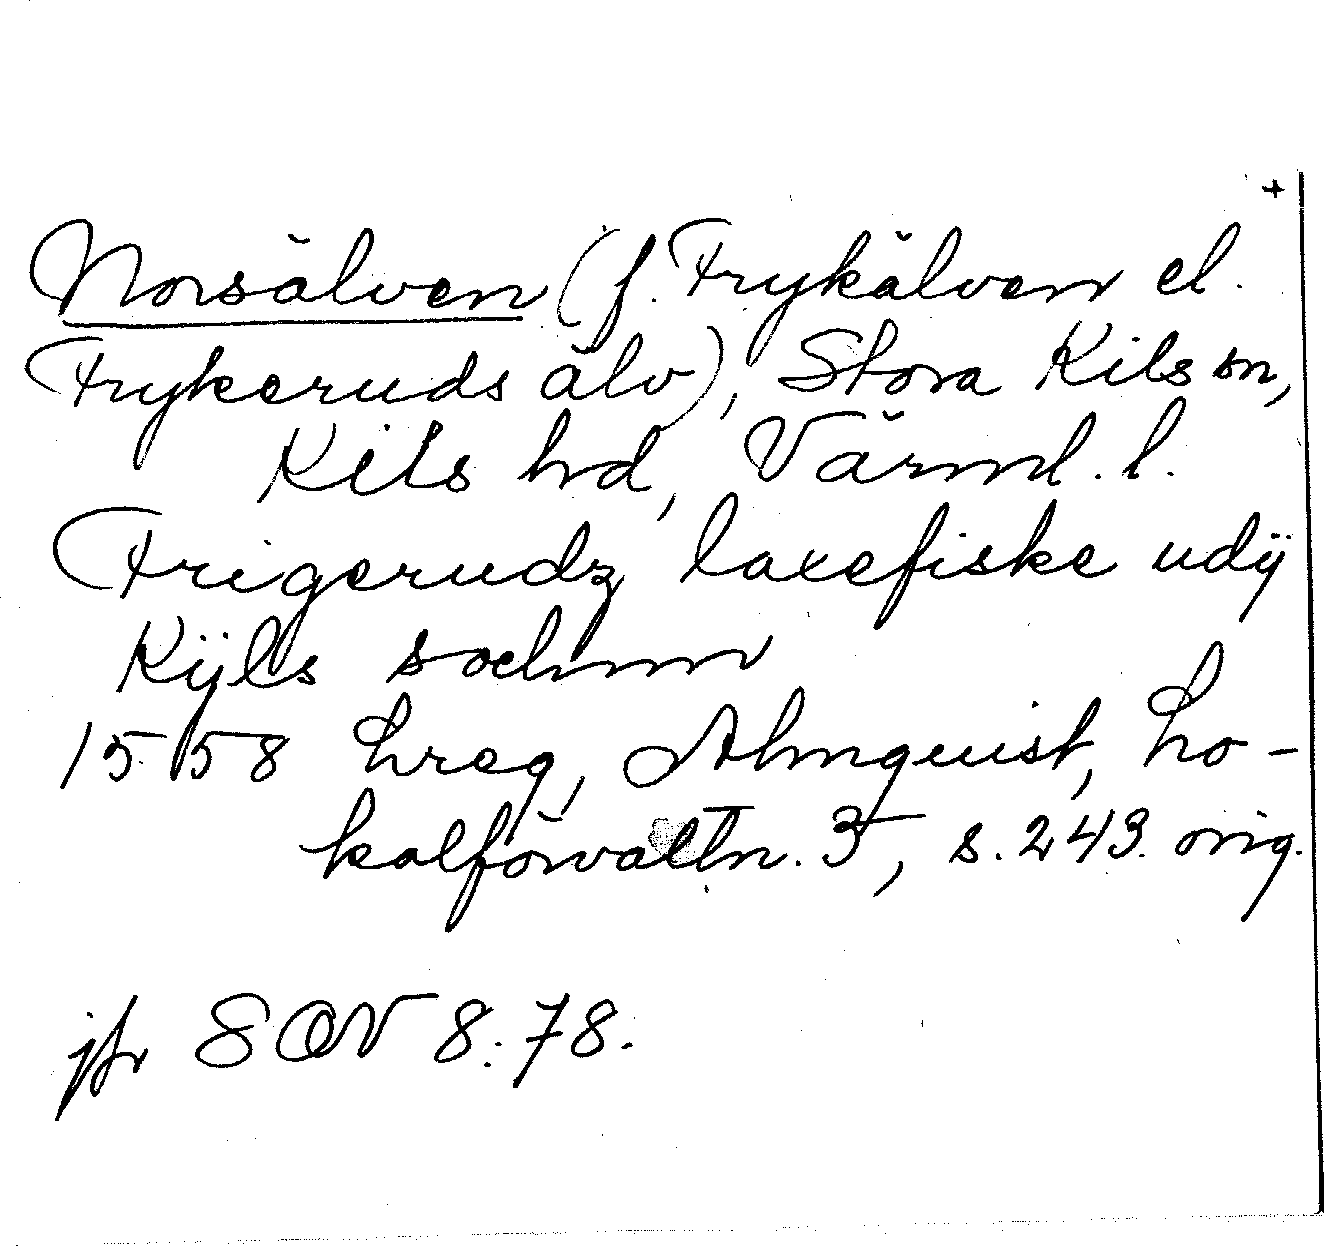 +
Norsälven (f. Frykälven el.
Frykeruds älv), Stora Kils sn,
Kils hd, Värml. l.
Frigerudz laxefiske udij
Kijls sochnn
1558 hreg, Almquist, Lo-
kalförvaltn. 3, s. 243. orig.
jfr SOV 8:78.